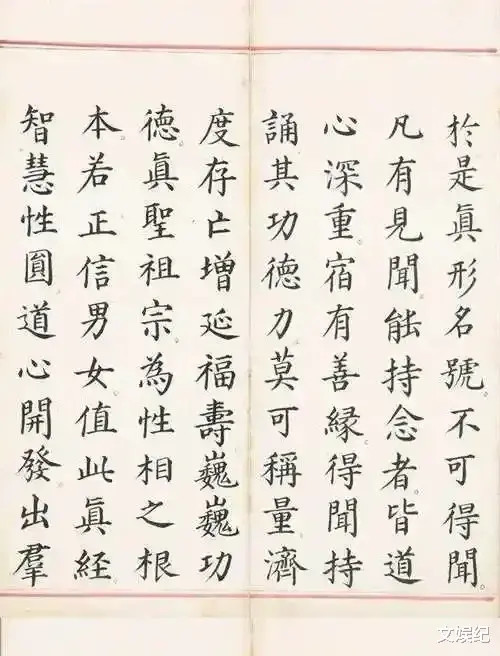 於是眞形名號。不可得聞。
凡有見聞。能持念者。皆道
心深重。宿有善緣。得聞持
誦其功德力莫可稱量。濟
度存亡增延福壽巍巍功
德。眞聖祖宗。為性相之根
本。若正信男女值此眞経。
智慧性圓道心開發出羣
文娱纪